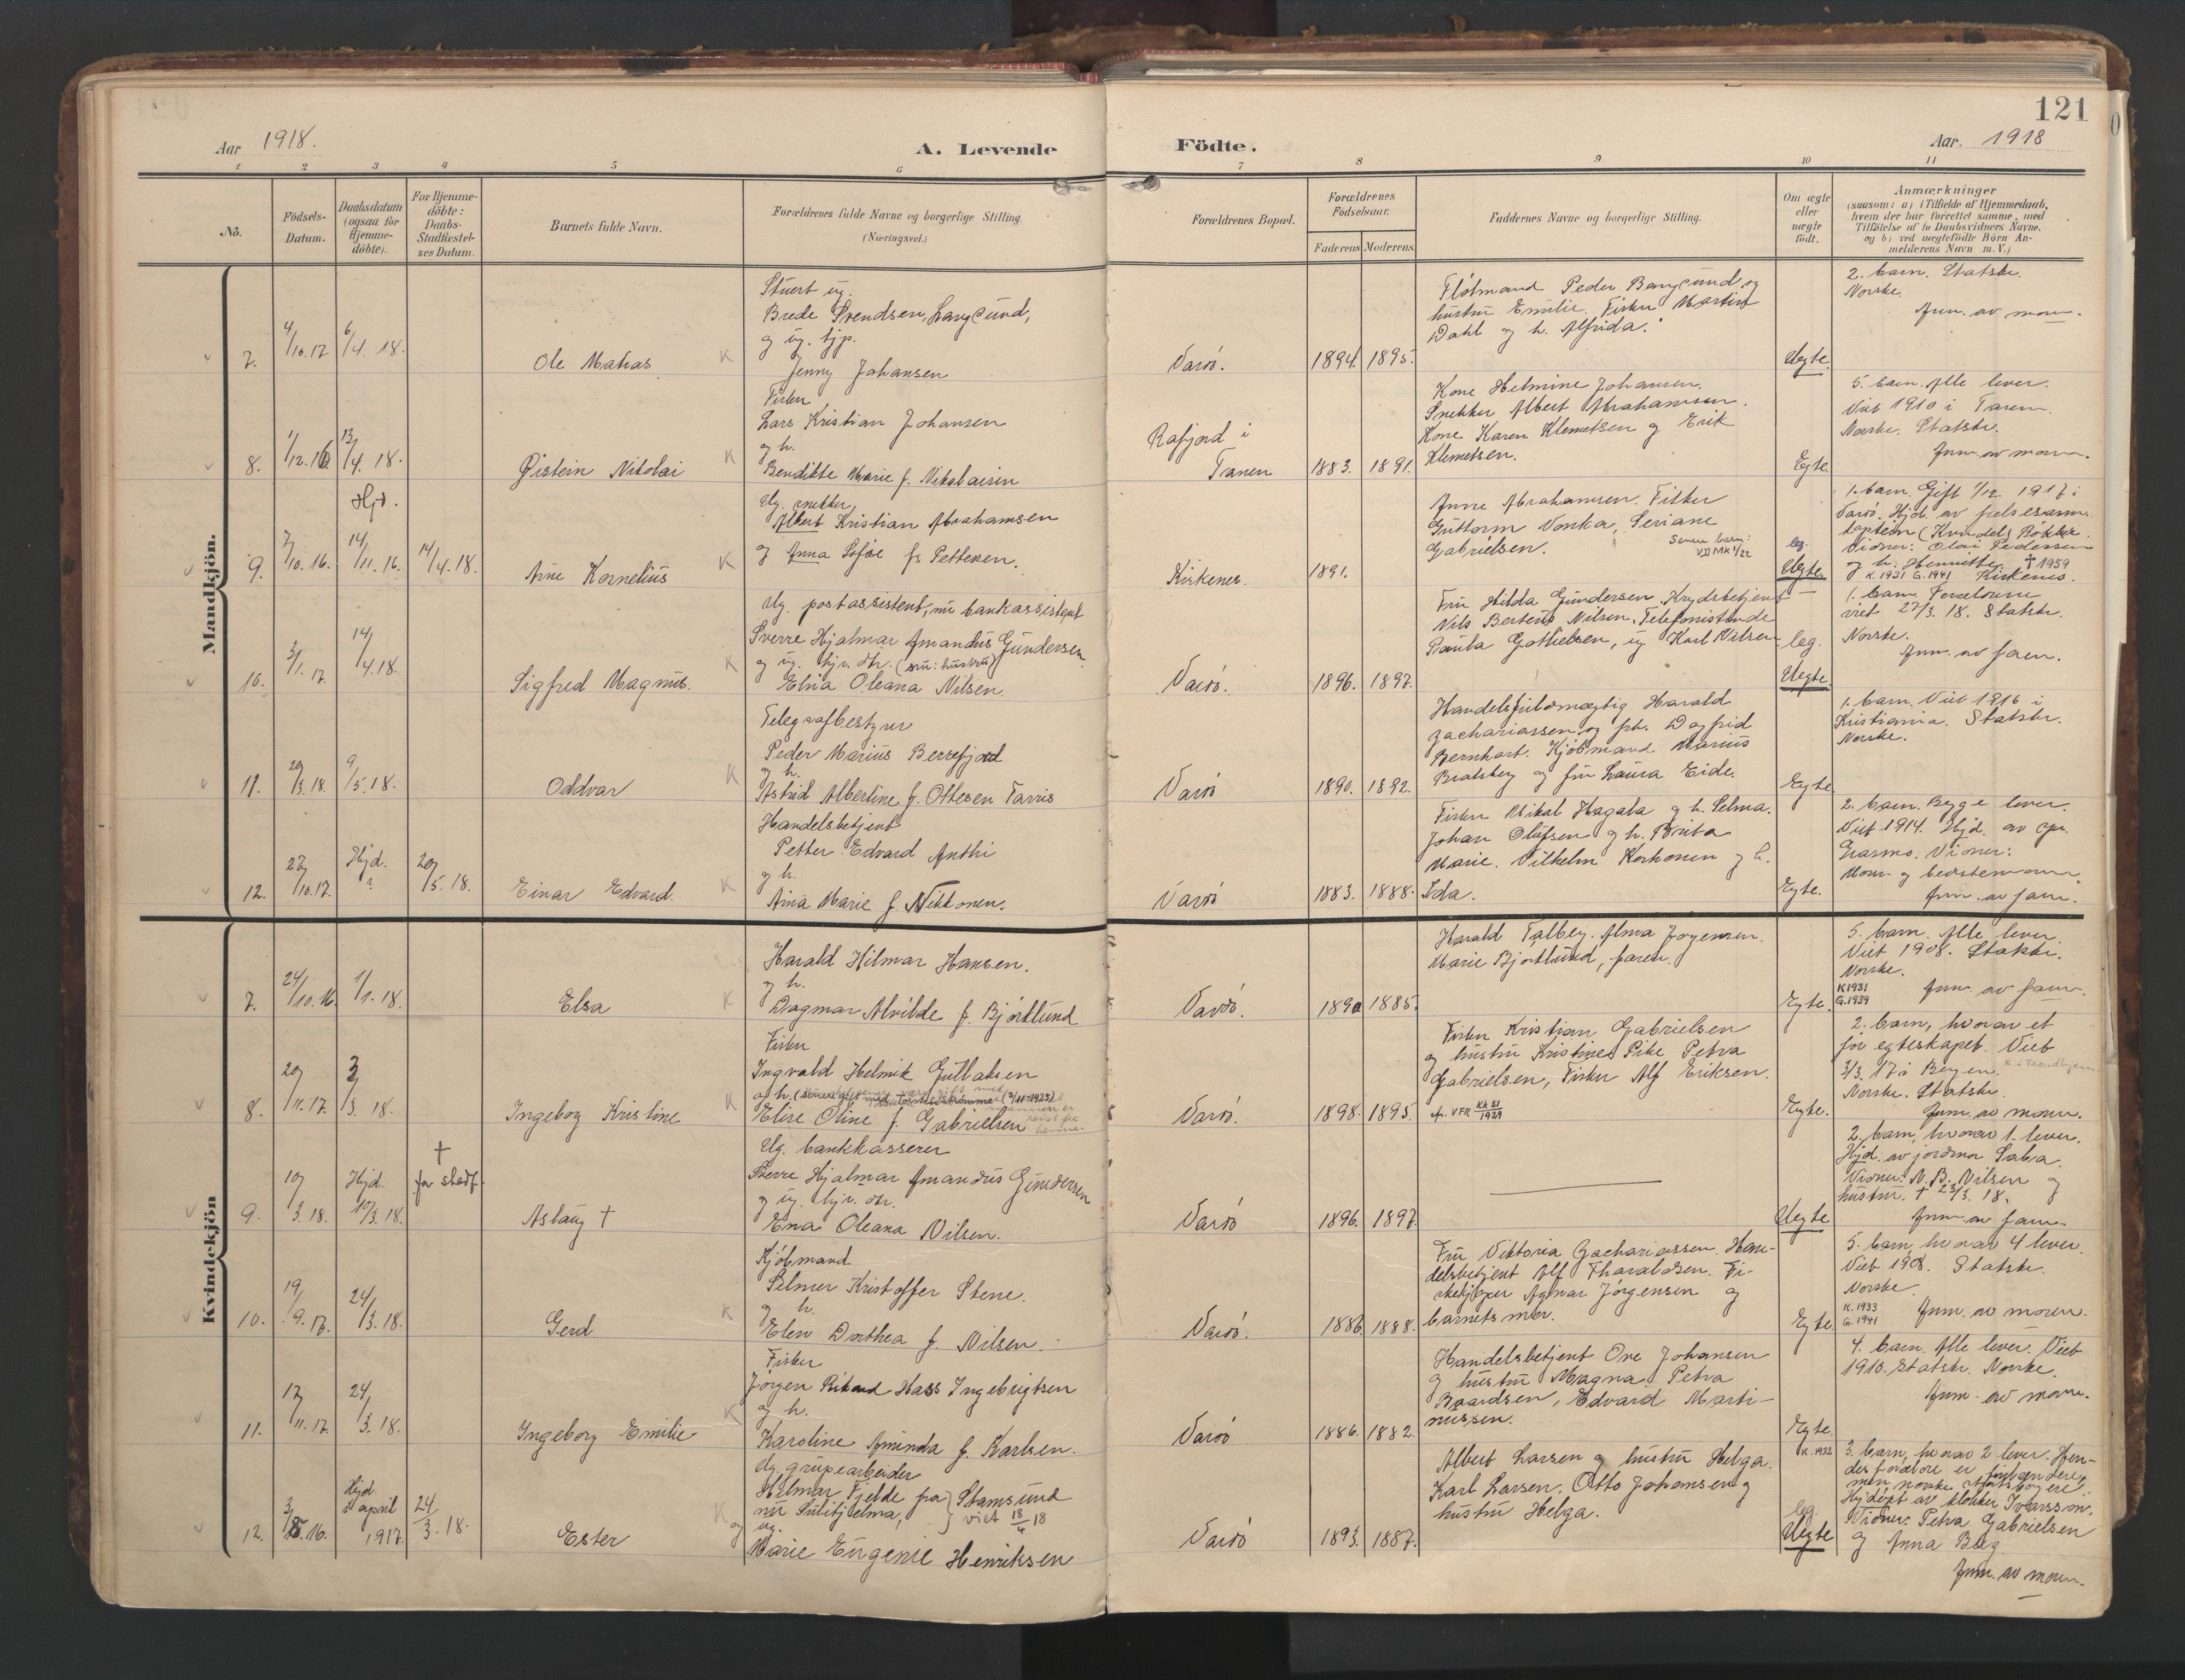 121
Aar 1918.
A. Levende
Födte.
Aar. 1918
1 2 3 4 5 6 7 8 9 10 11
No.
Födsels-
Datum.
Daabsdatum
(ogsaa for
Hjemme-
döbte).
For Hjemme-
döbte:
Daabs-
Stadfæstel-
ses Datum.
Barnets fulde Navn.
Forældrenes fulde Navne og borgerlige Stilling
(Næringsvei.)
Forældrenes Bopæl.
Forældrenes
Födselsaar.
Faderens Moderens.
Faddernes Navne og borgerlig Stilling.
Om ægte
eller
uægte
födt.
Anmærkninger
(saasom: a) i Tilfælde af Hjemmedaab,
hvem der har forrettet samme, med
Tilföielse af to Daabsvidners Navne.
og b) ved uægtefödte Börn An-
melderens Navn m. V.)
Mandkjön.
7.
4/10.17
6/4.18.
Ole Matias
K
Stuert ug.
Brede Svendsen, Langsund,
og ug. tjp.
Jenny Johansen
Vardö.
1894. 1895.
Flötmand Peder Bangsund og
hustru Emilie. Fisker Martin
Dahl og h. Alfrida.
Uegte.
2. barn. Statskr.
Norske.
Anm. av mor.
8.
1/12.16
13/4.18.
Øistein Nikolai
K
Fisker
Lars Kristian Johansen
og h.
Bendikte Marie f. Nikolaisen
Rafjord i
Tranen
1883. 1891.
Kone Helmine Johansen.
Snekker Albert Abrahamsen.
Kone Karen Klemetsen og Erik
Klemetsen.
Egte.
5. barn. Alle lever.
Viet 1910 i Tarem.
Norske. Statskr.
Anm. av moren.
9.
7/10.16.
Hjd.
14/11.16.
14/4.18.
Arne Kornelius
K
Ug. snekker
Albert Kristian Abrahamsen
og Anna Sofie f. Pettersen.
Kirkenes.
1891.
Anne Abrahamsen. Fisker
Guttorm Vonka, Seriane
Gabrielsen.
leg.
Uegte
1. barn. Gift 1/12. 1917 i
Vardö. Hjd. av frelsesarm.
kaptein (Kvindel) Rökke.
Vidner: Olai Pedersen
og h. Henriette. † 1959
K. 1931 G. 1941 Kirkenes.
10.
3/1.17.
14/4.18.
Sigfred Magnus.
K
Ug. postassistent, nu bankassistent
Sverre Hjalmar Amandus Gundersen
og ug. hjv. dtr. (nu: hustru)
Elna Oleana Nilsen.
Vardö.
1896. 1897.
Fru Hilda Gundersen. Krydsbetjent
Nils Berteus Nilsen. Telefonistinde
Paula Gotliebsen, ug Karl Nilsen
leg.
Uegte.
1. barn. Foreldrene
viet 27/3. 18. Statskr.
Norske.
Anm. av faren.
11.
29/3.18.
9/5.18.
Oddvar
K
Telegrafbestyrer
Peder Marius Berrefjord
og h.
Astrid Albertine f. Ottesen Tarris
Vardö
1890. 1892.
Handelsfuldmægtig Harald
Zachariassen og frk. Dagfrid
Bernhart. Kjöbmand Marius
Bratsberg og fru Laura Eide.
Egte
1. barn. Viet 1916 i
Kristiania. Statskr.
Norske.
12.
27/10.17.
Hjd.
?
20/5.18.
Einar Edvard.
K
Handelsbetjent
Petter Edvard Anthi
og h.
Aina Marie f. Nikkonen.
Vardö
1883. 1888.
Fisker Mikal Hagala og h. Selma.
Johan Olufsen og h. Brita
Marie. Vilhelm Korhonen og h.
Ida.
Egte.
2. barn. Begge lever.
Viet 1914. Hjd. av
Erasmo. Vidner:
Mor og bedstemor
Anm. av faren.
Kvindekjön
7.
24/10.16.
1/1.18.
Elsa
K
Harald Hilmar Hansen.
og h.
Dagmar Alvilde f. Bjórklund
Vardö.
1890 1885.
Harald Talberg. Alma Jörgensen.
Marie Bjorklund, faren.
Egte.
5. barn. Alle lever
Viet 1908. Statskr.
Norske.
K 1931
G. 1939
Anm. av faren.
8.
20/11.17.
3/3.18.
Ingeborg Kristine
K
Fisker
Ingvald Helmik Gullaksen
og h.
Elise Oline f. Gabrielsen
Vardö.
1898. 1895.
Fisker Kristian Gabrielsen
og hustru Kristine. Pike Petra
Gabrielsen, Fisker Alf Eriksen.
Egte.
2. barn, hvorav et
för egteskapet. Viet
3/3. 17 i Bergen.
Norske. Statskr.
Anm. av moren.
9.
10/3.18.
Hjd.
10/3.18.
†
för stadf.
Aslaug †
Ug. bankkasserer
Sverre Hjalmar Amandus Gundersen
og ug. hjv. dtr.
Ena Oleana Nilsen.
Vardö
1896. 1897.
Uegte
2. barn, hvorav 1. lever.
Hjd. av jordmor Saba.
Vidner: N. B. Nilsen og
hustru. † 23/3. 18.
Anm. av faren
10.
19/9.17.
24/3.18.
Gerd
K
Kjöbmand
Selmer Kristoffer Stene.
og h.
Elen Dorthea f. Nilsen.
Vardö.
1886. 1888.
Fru Viktoria Zachariassen. Han-
delsbetjent Alf Tharaldsen. Fi-
skekjöper Agnar Jörgensen og
barnets mor.
Egte.
5. barn, hvorav 4 lever.
Viet 1908. Statskr.
Norske
K. 1933
G. 1941
Anm. av moren.
11.
17/11.17.
24/3.18.
Ingeborg Emilie
K
Fisker
Jörgen Rikard Hass Ingebrigtsen
og h.
Karoline Aminda f. Karlsen.
Vardö
1886. 1882.
Handelsbetjent Ove Johansen
og hustru Magna. Petra
Baardsen, Edvard Marti-
nussen.
Egte
4. barn. Alle lever. Viet
1910. Statskr. Norske.
Anm. av moren.
12.
Hjd
april
1917.
24/3.18.
Ester
K
Ug. grupearbeider
Hilmar Fjelde fra Stamsund
nu Sulitjelma, viet 18/4 18
og ug.
Marie Eugenie Henriksen
Vardö
1893. 1887.
Albert Larsen og hustru Helga.
Karl Larsen. Otto Johansen og
hustru Helga.
K. 1932
leg.
Uegte
3. barn, hvorav 2 lever. Hen-
des foreldre er finlændere,
men norske statsborgere.
Hjdöpt av klokker Ivarsson.
Vidner: Petra Gabrielsen
og Anna Berg
Anm. av moren.